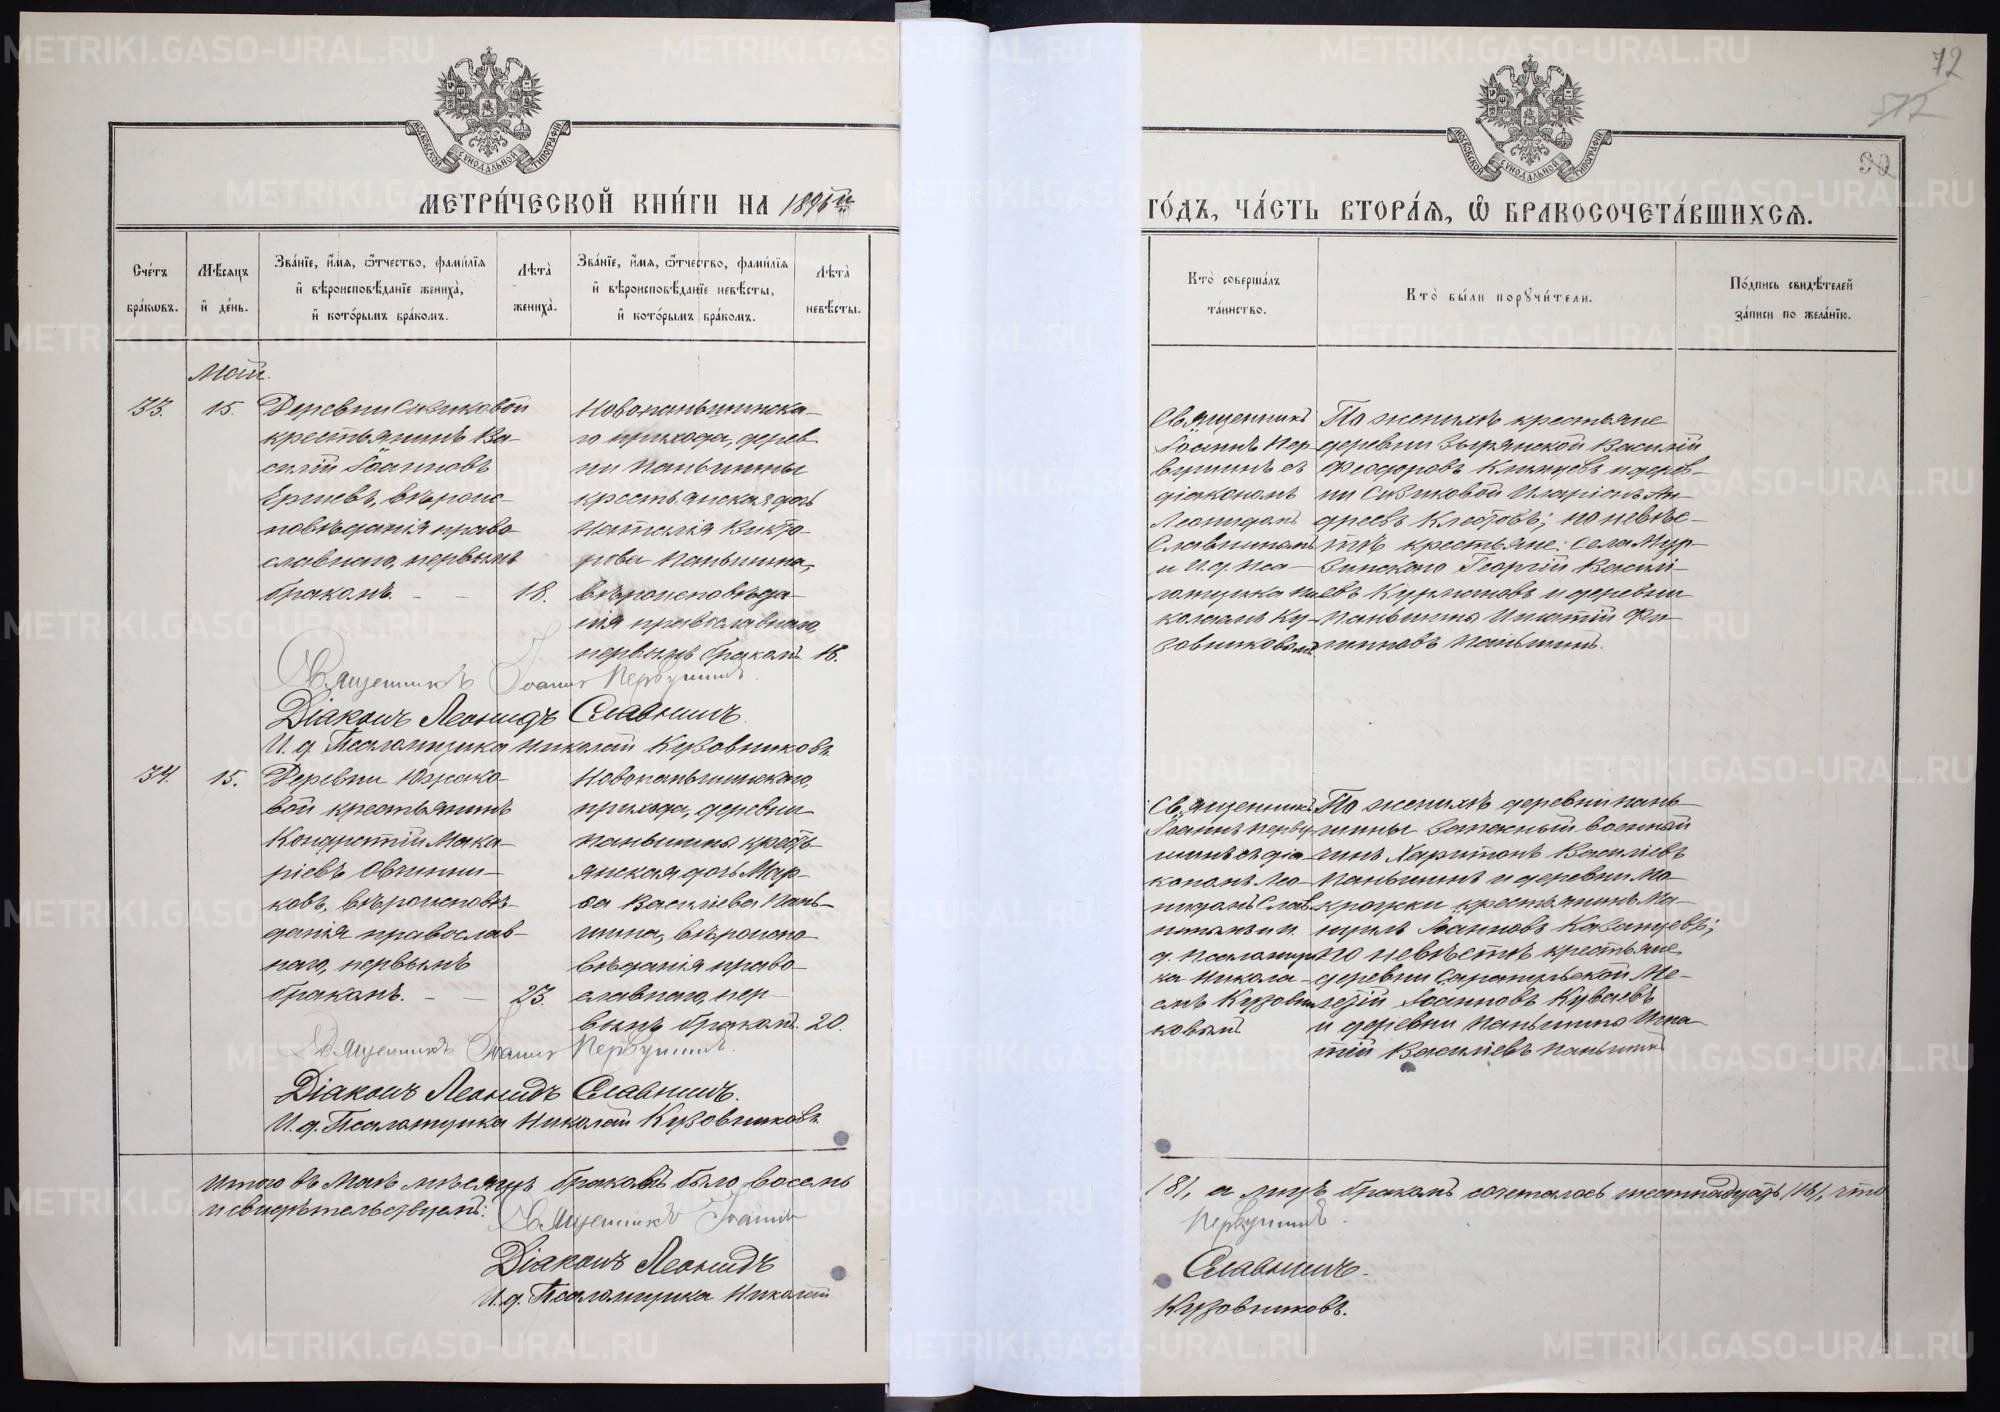 72
512
30
МОСКОВСКОЙ СѴНОДАЛЬНОЙ ТИПОГРАФІИ
МОСКОВСКОЙ СѴНОДАЛЬНОЙ ТИПОГРАФІИ
МЕТРИ́ЧЕСКОЙ КНИ́ГИ НА 1896й
ГО́ДЪ, ЧА́СТЬ ВТОРА́Я, Ѡ҆ БРАКОСОЧЕТА́ВШИХСѦ.
Сче́тъ бра́кѡвъ.
Мѣ́сяцъ и҆ де́нь.
Зва́нїе, и҆́мя, ѻ҆́тчество, фами́лїя и҆ вѣроисповѣ́данїе жениха̀, и҆ кото́рымъ бра́комъ.
Лѣта̀ жениха̀.
Зва́нїе, и҆́мя, ѻ҆́тчество, фами́лїя и҆ вѣроисповѣ́данїе невѣ́сты, и҆ кото́рымъ бра́комъ.
Лѣта̀ невѣ́сты.
Кто̀ соверша́лъ та́инство.
Кто̀ бы́ли порꙋчи́тели.
По́дпись свидѣ́телей за́писи по жела́нїю.
Май.
33.
15.
Деревни Сизиковой
крестьянинъ Ва-
силій Іоанновъ
Ергиевъ, вѣроис-
повѣданія право
славнаго, первымъ
бракомъ. — —
18.
Новопаньшинска-
го прихода, дерев
ни Паньшины
крестьянская дочь
Наталія Викто-
рова Паньшина,
вѣроисповѣда-
нія православнаго,
первымъ бракомъ.
18.
Священникъ
Іоаннъ Пер-
вушинъ съ
діакономъ
Леонидомъ
Славнинымъ
и И.д. Пса-
ломщика Ни
колаемъ Ку-
зовниковымъ
По женихѣ крестьяне
деревни Зырянской Василій
Феодоровъ Клинцевъ и дерев-
ни Сизиковой Иларіонъ Ан-
дреевъ Клестовъ; по невѣс-
тѣ крестьяне: села Мур-
зинскаго Георгій Васильи-
евъ Курмановъ и деревни
Паньшины Игнатій Фи-
липповъ Паньшинъ.
Священникъ Іоаннъ Первушинъ.
Діаконъ Леонидъ Славнинъ.
И.д. Псаломщика Николай Кузовниковъ.
34.
15.
Деревни Южако-
вой крестьянинъ
Кондратій Мака-
ріевъ Овчинни-
ковъ, вѣроисповѣ-
данія православ-
наго, первымъ
бракомъ. — —
23.
Новопаньшинскаго,
прихода, деревни
Паньшины кресть
янская дочь Мар-
ѳа Васильева Пань-
шина, вѣроиспо
вѣданія право-
славнаго, пер-
вымъ бракомъ.
20.
Священникъ
Іоаннъ Перву
шинъ съ діа-
кономъ Лео-
нидомъ Слав
нинымъ и И.
д. Псаломщи
ка Никола-
емъ Кузовни
ковымъ.
По женихѣ деревни Пань-
шины запасный военный
чинъ Харитонъ Василіевъ
Паньшинъ и деревни Мо-
кроуски крестьянинъ Ма-
нуилъ Іоанновъ Казанцевъ;
по невѣстѣ крестьяне
деревни Сарапульской Ме-
летій Іоанновъ Куваевъ
и деревни Паньшины Игна
тій Василіевъ Паньшинъ
Священникъ Іоаннъ Первушинъ.
Діаконъ Леонидъ Славнинъ.
И.д. Псаломщика Николай Кузовниковъ.
Итого въ Маѣ мѣсяцѣ браковъ было восемь /8/, а лицъ бракомъ сочеталось шестнадцать /16/, что
и свидѣтельствуемъ:
Священникъ Іоаннъ Первушинъ.
Діаконъ Леонидъ Славнинъ.
И.д. Псаломщика Николай Кузовниковъ.
METRIKI.GASO-URAL.RU